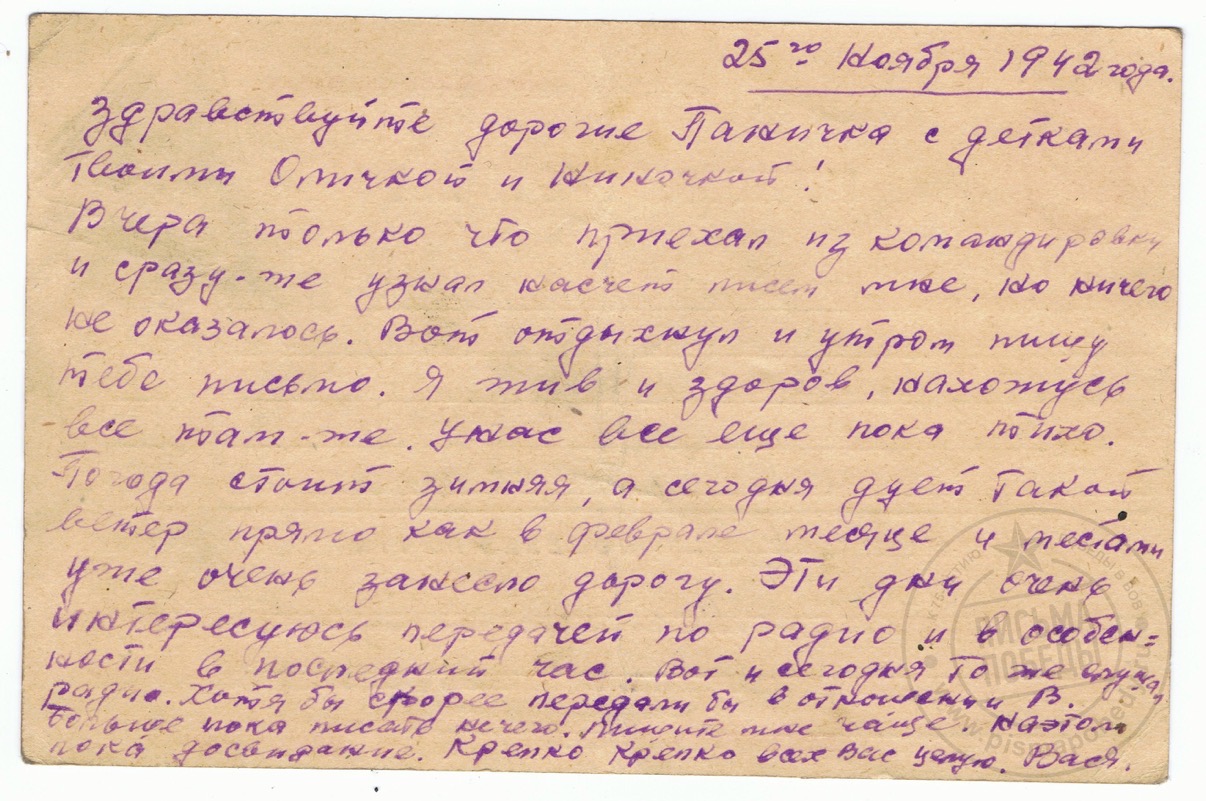 25го Ноября 1942 года.
Здравствуйте дорогие Паничка с детками
твоими Оличкой и Ниночкой!
Вчера только что приехал из командировки
и сразу-же узнал насчет писем мне, но ничего
не оказалось. Вот отдыхнул и утром пишу
тебе письмо. Я жив и здоров, нахожусь
все там-же. У нас все еще пока тихо.
Погода стоит зимняя, а сегодня дует такой
ветер прямо как в феврале месяце и местами
уже очень занесло дорогу. Эти дни очень
интересуюсь передачей по радио и в особен=
ности в последний час. Вот и сегодня то же слушал
радио. Хотя бы скорее передали бы в отношении В.
Больше пока писать нечего. Пишите мне чаще. Наэтом
пока досвидание. Крепко крепко всех Вас целую. Вася.
ПИСЬМА
ПОБЕДЫ